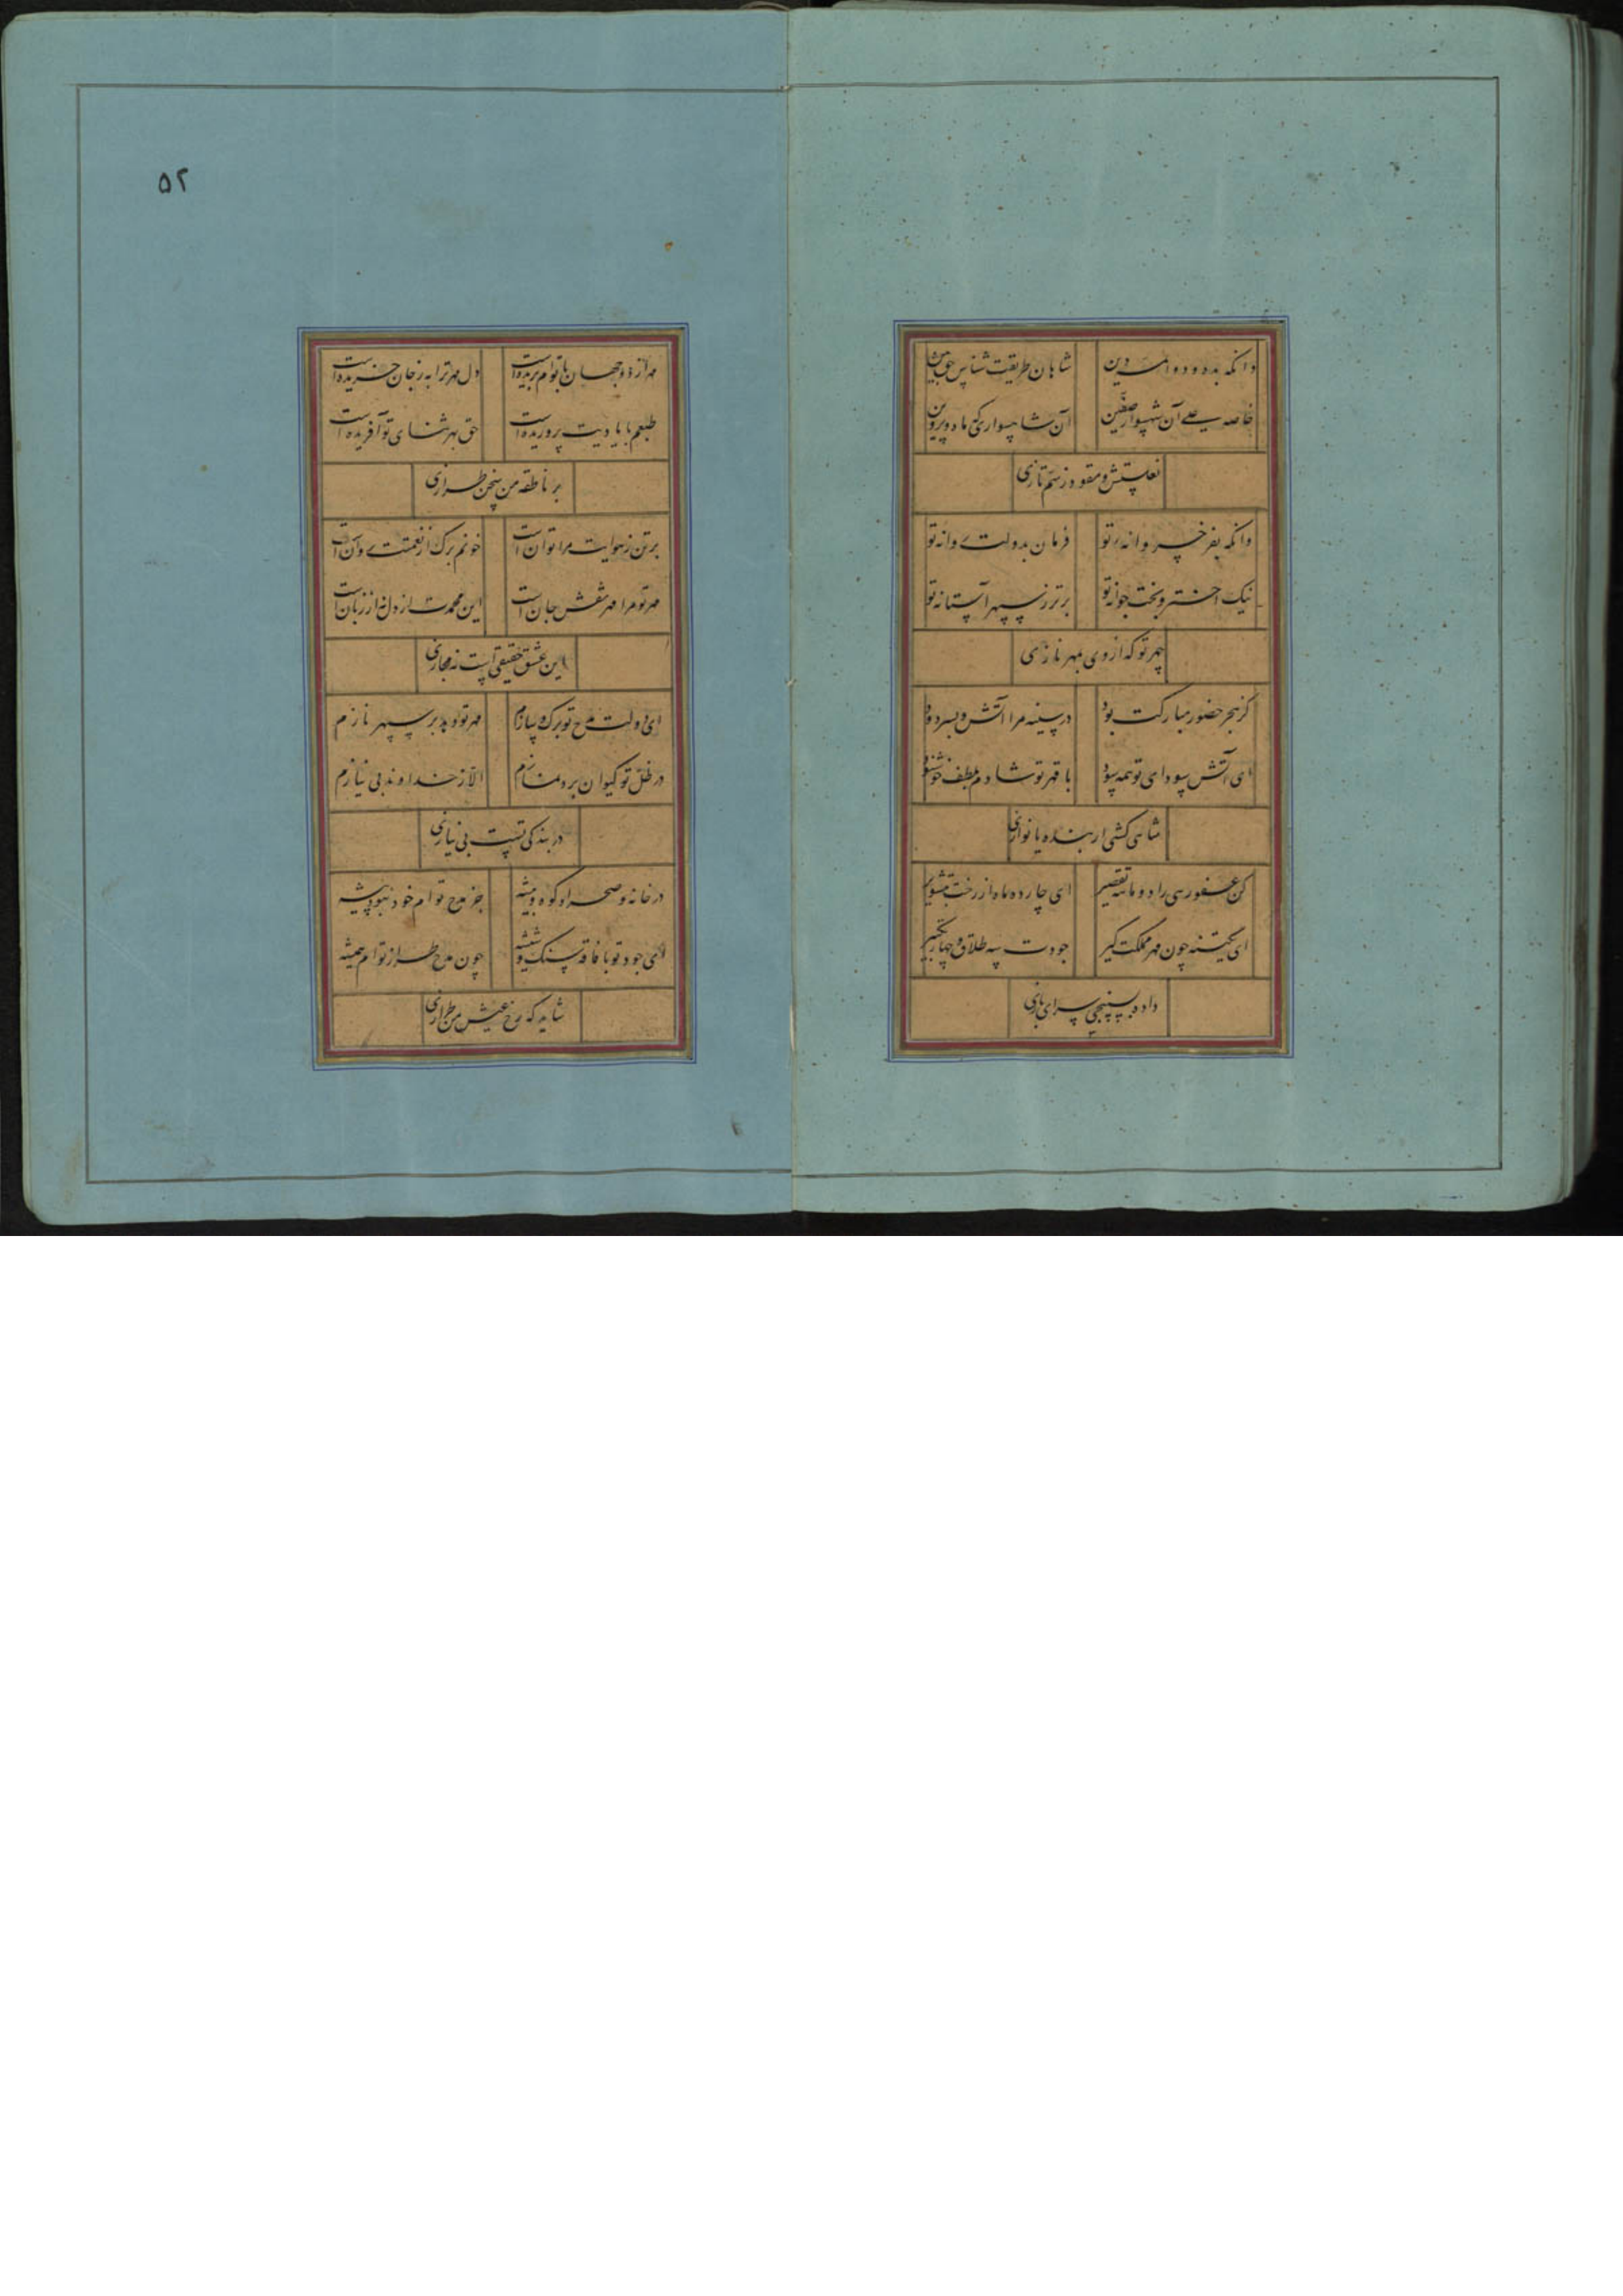 وانکه بده و دو امت دین
شاهان طریقت شناس حق بین
خاصه علی آن شهسوار صفین
آن شاهسواری که ماه و پروین
نعلستش و مقود ز سم تازی
وانکه بفر خسروانه تو
فرمان بدولت روانه تو
نیک اختر و بخت جوانه تو
برتر ز سپهر آستانه تو
چهر تو که از وی بمهر نازی
کز هجر حضور مبارکت بود
در سینه مرا آتش و بسر دود
ای آتش سودای تو همه سود
با قهر تو شادم بلطف خوشنود
شاهی کشی ار بنده یا نوازی
کن عفو رهی را دو ماهه تقصیر
ای چارده ماه از رخت
ای یکتنه چون مهر مملکت گیر
جودت سه طلاق و چهار تکبیر
داده سپنجی سرای بازی
۵۲
مهر از دو جهان با توام بریده است
دل مهر ترا به ز جان خریده است
طبعم با یادیت پروریده است
حق بهر ثنای تو آفریده است
بر ناطقه من سخن طرازی
بر تن ز هوایت مرا توان است
خونم برگ از نعمتت روان است
مهر تو مرا مهر شفش جان است
این محمدت از دل نه از زبان است
این عشق حقیقی است نه مجازی
ای دولت مدح تو برک و سازم
مهر تو و بد بر سپهر نازم
در ظل تو کیوان برد نمازم
الا ز خداوند بی نیازم
در بندکی تست بی نیازی
در خانه و صحرا و کوه و بیشه
جز مدح توام خود نبود پیشه
ای جود تو با فاقه سنک و شیشه
چون مدح طراز توام همیشه
شاید که رخ عیش من طرازی